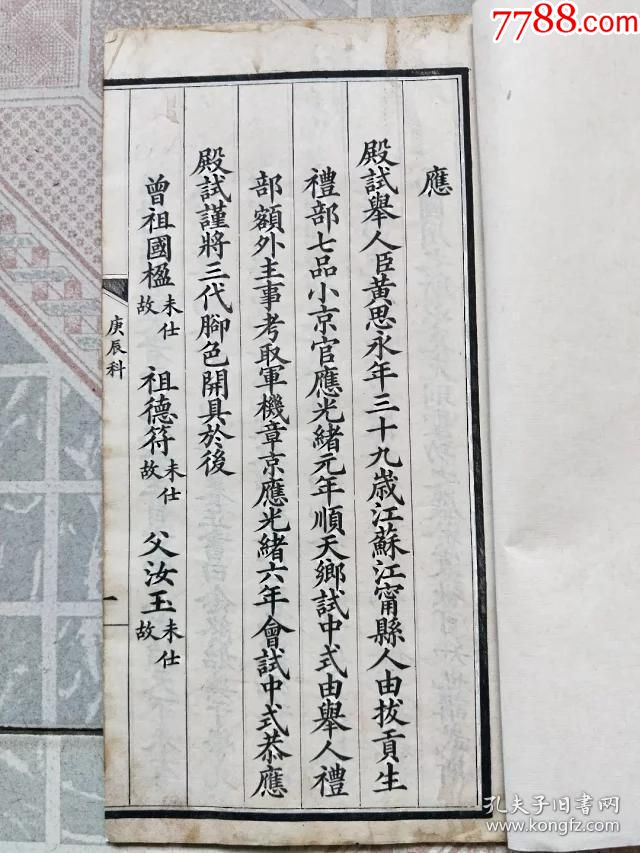 7788.com
應
殿試舉人臣黃思永年三十九歲江蘇江甯縣人由拔貢生
禮部七品小京官應光緒元年順天鄉試中式由舉人禮
部額外主事考取軍機章京應光緒六年會試中式恭應
殿試謹將三代腳色開具於後
曾祖國楹未仕故 祖德符未仕故 父汝玉未仕故
庚辰科
一
孔夫子旧书网
www.kongfz.com